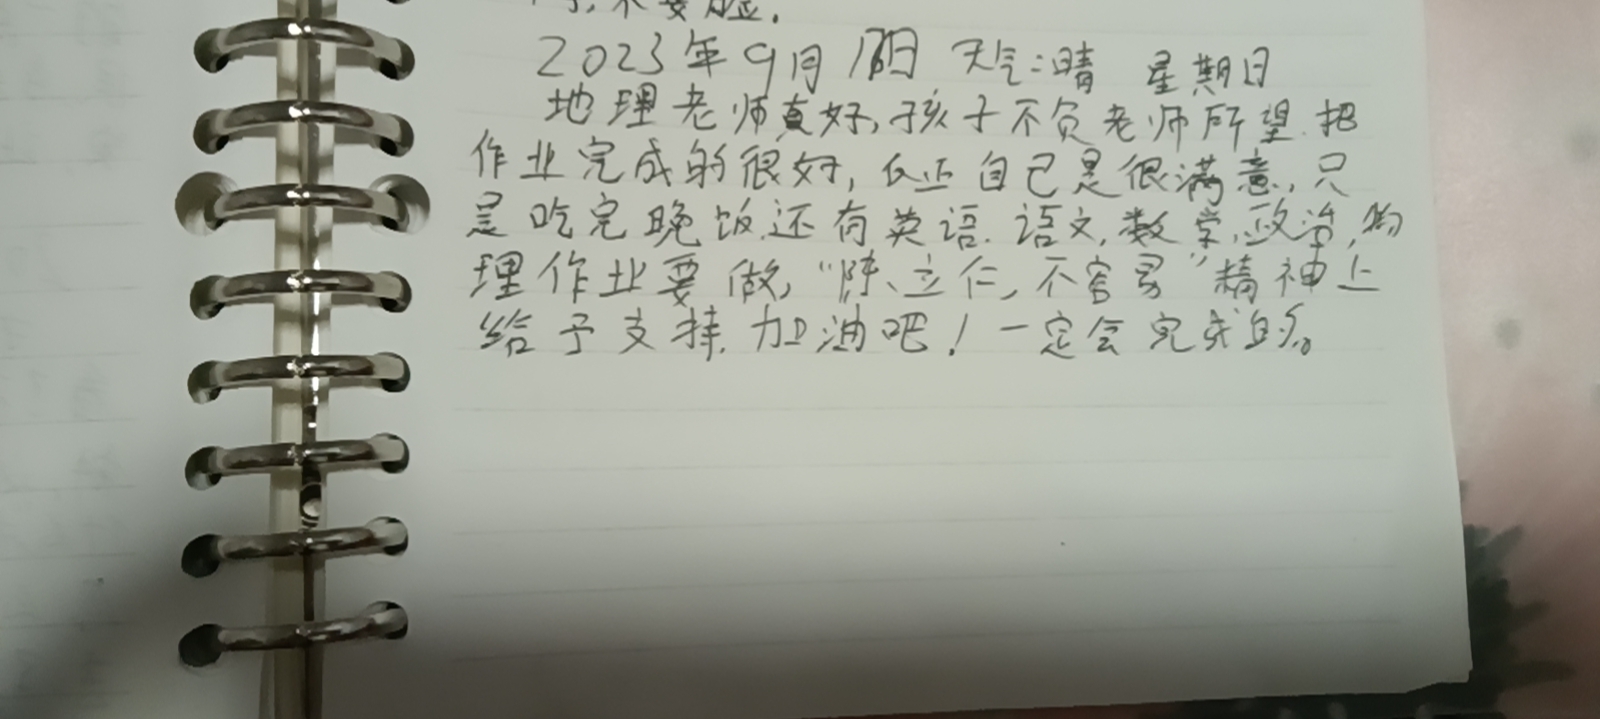 不要脸.
2023年9月17日 天气:晴 星期日
地理老师真好,孩子不负老师所望.把
作业完成的很好,反正自己是很满意,只
是吃完晚饭.还有英语.语文,数学,政治,物
理作业要做,“陈立仁,不容易”精神上
给予支持.加油吧!一定会完成的。